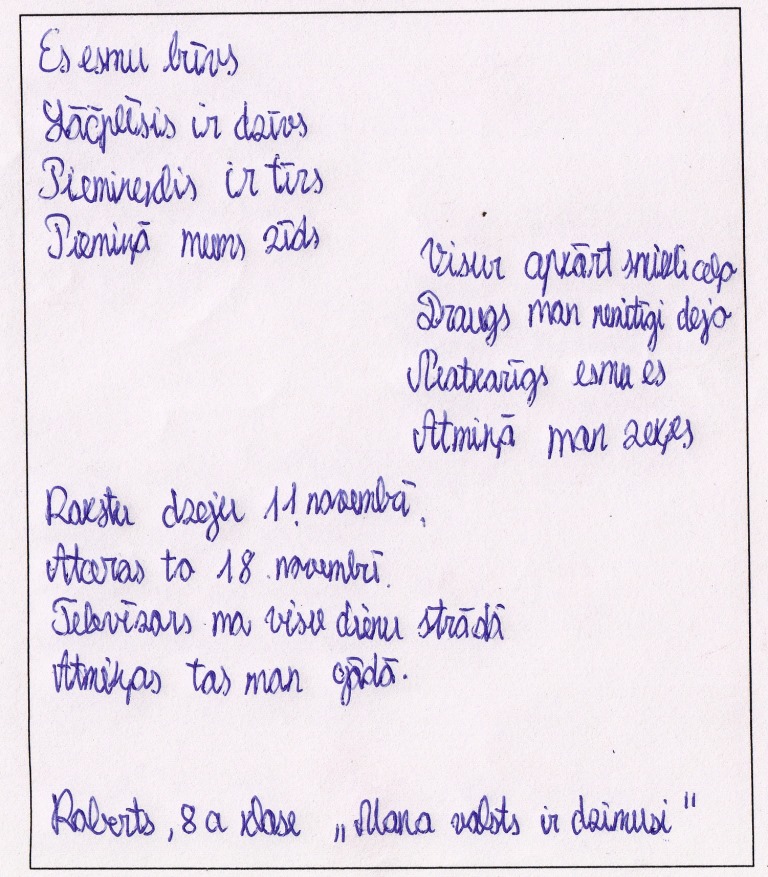 Es esmu brīvs
Lāčplēsis ir dzīvs
Piemineklis ir tīrs
Piemiņā mums zīds
Visur apkārt celo
Draugs man dejo
Neatkarīgs esmu es
Atmiņā man zeķes
Rakstu dzeju 11. novembrī.
Atceras to 18. novembrī.
Televīzors ma visu dienu strādā
Atmiņas tas man gādā.
Roberts, 8 a klase „Mana valsts ir dzimusi"